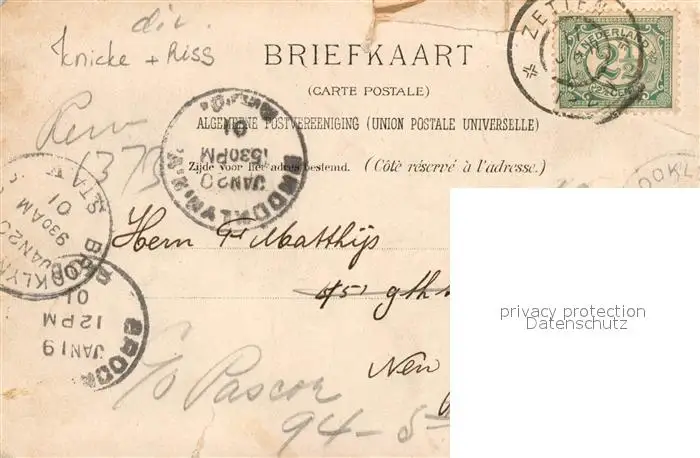 div.
Knicke + Riss
BRIEFKAART
(CARTE POSTALE)
ALGEMEENE POSTVEREENIGING (UNION POSTALE UNIVERSELLE)
Zijde voor het adres bestemd. (Côté réservé à l'adresse.)
ZETTEN
NEDERLAND
2½
CENT
1373
BROOKLYN, N.Y.
JAN 20
530PM
01
BROOKLYN
STA
JAN 20
930AM
01
BROOK
JAN 19
12PM
01
Hern F Matthijs
451 9th
New
c/o Pascor
94 - 5
privacy protection
Datenschutz